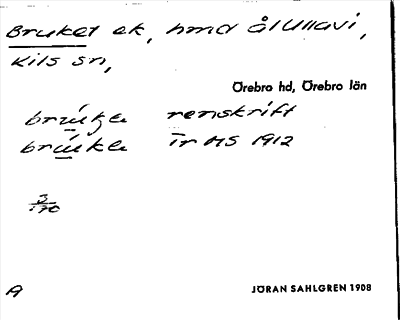 Bruket ek, hmd Ålullavi,
Kils sn,
Örebro hd, Örebro län
renskrift
brukle Ir HS 1912
3/170
A
JÖRAN SAHLGREN 1908